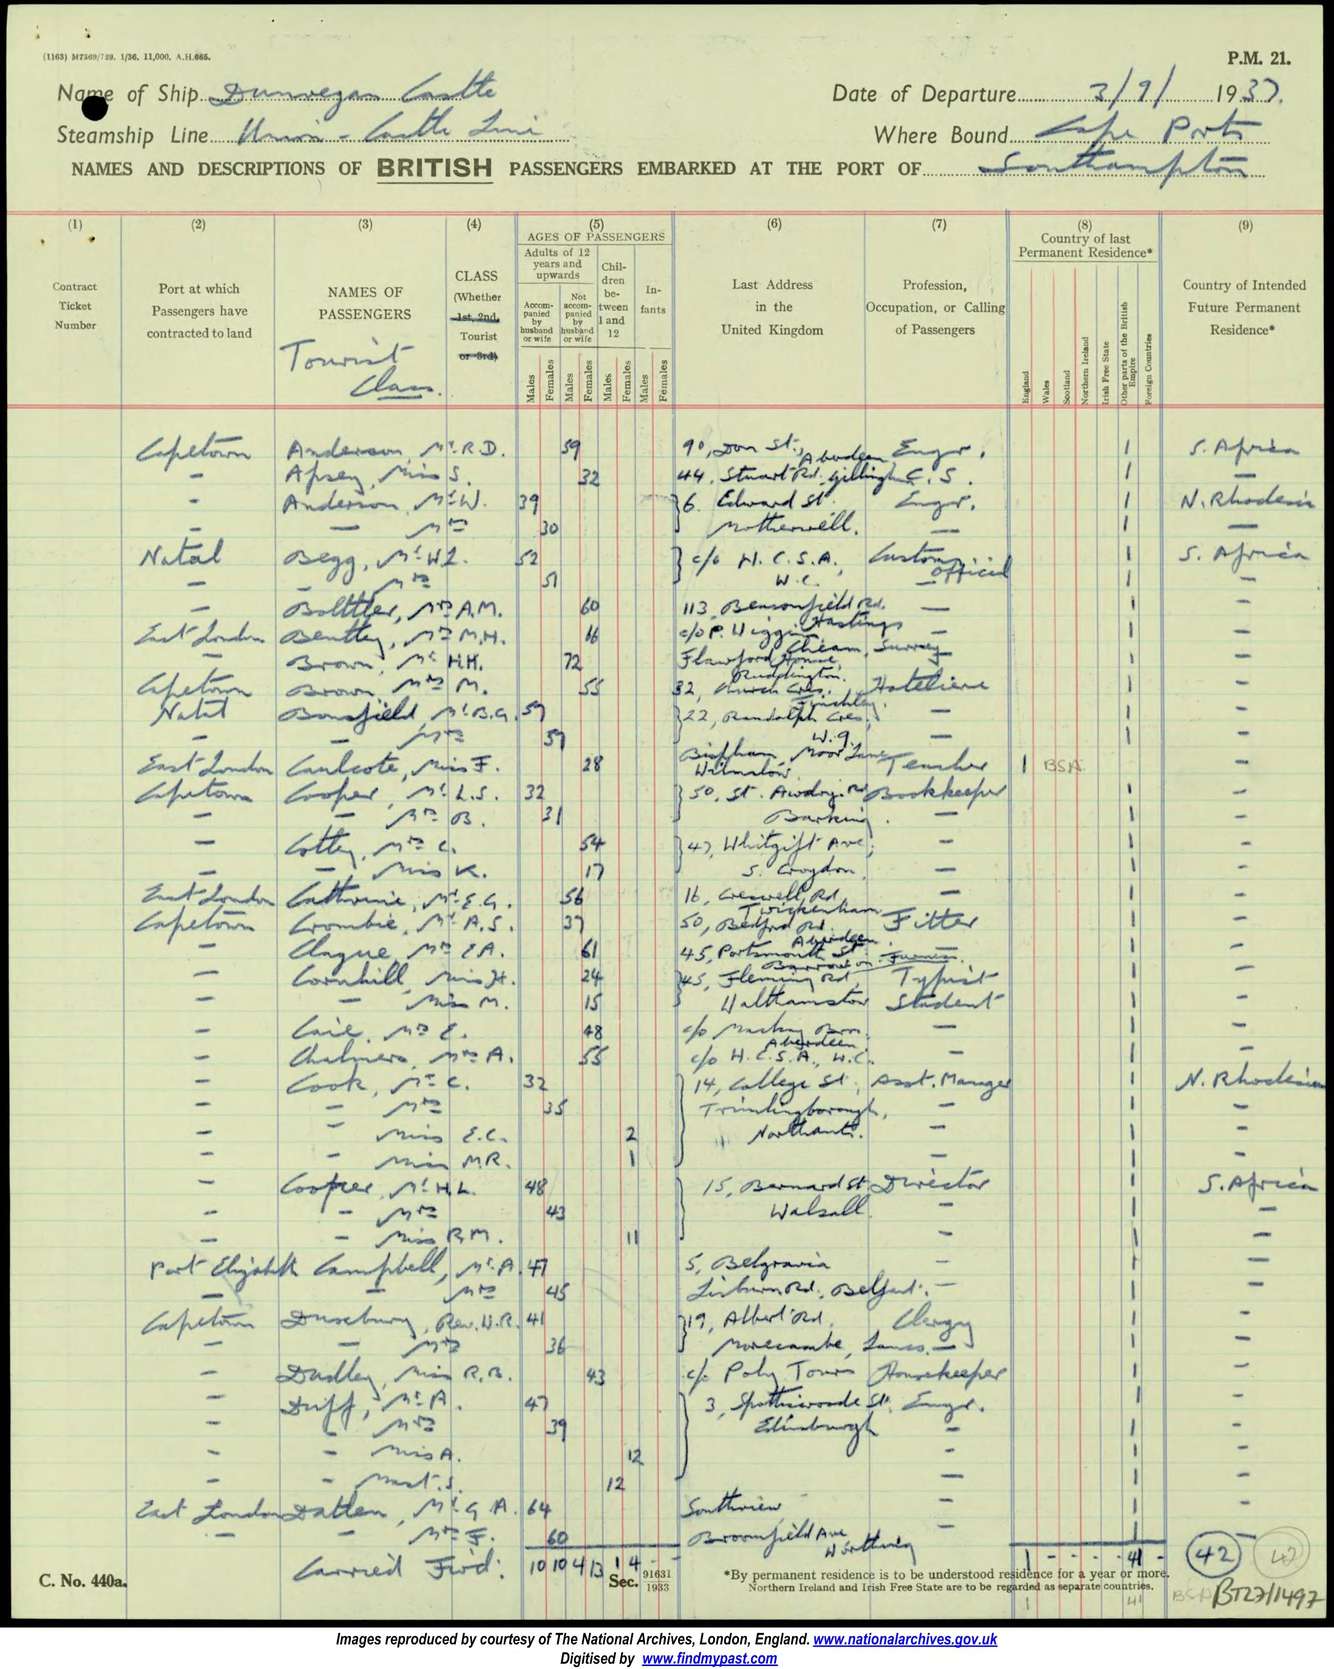 (1163) M7569/729. 1/36. 11,000. A.H.665.
P.M. 21.
Name of Ship Dunvegan Castle Date of Departure 3/9/ 1937.
Steamship Line Union-Castle Line Where Bound Cape Ports
NAMES AND DESCRIPTIONS OF BRITISH PASSENGERS EMBARKED AT THE PORT OF Southampton
(1) (2) (3) (4) (5) (6) (7) (8) (9)
Contract Ticket Number
Port at which Passengers have contracted to land
NAMES OF PASSENGERS
Tourist Class.
CLASS (Whether 1st, 2nd, Tourist or 3rd)
AGES OF PASSENGERS
Adults of 12 years and upwards
Accompanied by husband or wife
Not accompanied by husband or wife
Children between 1 and 12
Infants
Males Females Males Females Males Females Males Females
Last Address in the United Kingdom
Profession, Occupation, or Calling of Passengers
Country of last Permanent Residence*
England Wales Scotland Northern Ireland Irish Free State Other parts of the British Empire Foreign Countries
Country of Intended Future Permanent Residence*
Capetown Anderson, Mr. R.D. 59 90, Don St., Aberdeen Engr. 1 S. Africa
- Apsey, Miss S. 32 44, Stuart Rd. Gillingham C.S. 1 -
- Anderson, Mr. W. 39 6 Edward St. Engr. 1 N. Rhodesia
- - Mrs 30 Motherwell. 1 -
Natal Begg, Mr. W.L. 52 c/o H.C.S.A., Customs Official 1 S. Africa
- - Mrs 51 W.C. - 1 -
- Mrs A.M. 60 113, Rd. Hastings - 1 -
East London Bentley, Mrs M.H. 16 c/o P. Wiggin Cheam, Surrey - 1 -
- Brown, Mr. H.H. 72 Flawford House, Ruddington. - 1 -
Capetown Brown, Mrs M. 55 32, Church Cres., Finchley. Hoteliere 1 -
Natal Bousfield, Mr. B.G. 57 22, Randolph Cres., - 1 -
- - Mrs 57 W.9 - 1 -
East London Caulcote, Miss F. 28 Moor Lane Wilmslow Teacher 1 BSA -
Capetown Cooper, Mr. L.S. 32 50, St. Awdry's Rd Bookkeeper 1 -
- - Mrs B. 31 Barking. - 1 -
- Cottey, Mrs C. 54 47, Whitgift Ave, - 1 -
- - Miss K. 17 S. Croydon. - 1 -
East London Mr. E.G. 56 16, Creswell Rd, Twickenham - 1 -
Capetown Crombie, Mr. A.S. 37 50, Bedford Rd. Aberdeen Fitter 1 -
- Clague, Mrs E.A. 61 45, Portsmouth St Barrow in Furness - 1 -
- Cornhill, Miss H. 24 45, Fleming Rd, Typist 1 -
- - Miss M. 15 Walthamstow Student 1 -
- Cail, Mrs E. 48 c/o Mackay Bros. Aberdeen - 1 -
- Chalmers, Mrs A. 55 c/o H.C.S.A., W.C. - 1 -
- Cook, Mr. C. 32 14, College St, Asst. Manager 1 N. Rhodesia
- - Mrs 35 - 1 -
- - Miss E.C. 2 Northants. - 1 -
- - Miss M.R. 1 - 1 -
- Cooper, Mr. H.L. 48 15, Bernard St Director 1 S. Africa
- - Mrs 43 Walsall - 1 -
- - Miss R.M. 11 1 -
Port Elizabeth Campbell, Mr. A. 47 5, Belgravia - 1 -
- - Mrs 45 Lisburn Rd. Belfast. - 1 -
Capetown Duxebury, Rev. W.R. 41 19, Albert Rd. Clergy 1 -
- - Mrs 36 Morecambe, Lancs. - 1 -
- Dudley, Miss R.B. 43 c/o Poly Tours Housekeeper 1 -
- Duff, Mr. A. 47 3, Spottiswoode St. Engr. 1 -
- - Mrs 39 Edinburgh - 1 -
- - Miss A. 12 - 1 -
- - Mast. S. 12 - 1 -
East London Datlen, Mr. G.A. 64 Southview - 1 -
- - Mrs F. 60 Broomfield Ave Worthing - 1 -
Carried Fwd: 10 10 4 13 1 4 - - 1 - - - - 41 - 42 42
C. No. 440a.
Sec. 91631 1933
*By permanent residence is to be understood residence for a year or more.
Northern Ireland and Irish Free State are to be regarded as separate countries.
1 41 BSA BT27/1497
Images reproduced by courtesy of The National Archives, London, England. www.nationalarchives.gov.uk
Digitised by www.findmypast.com